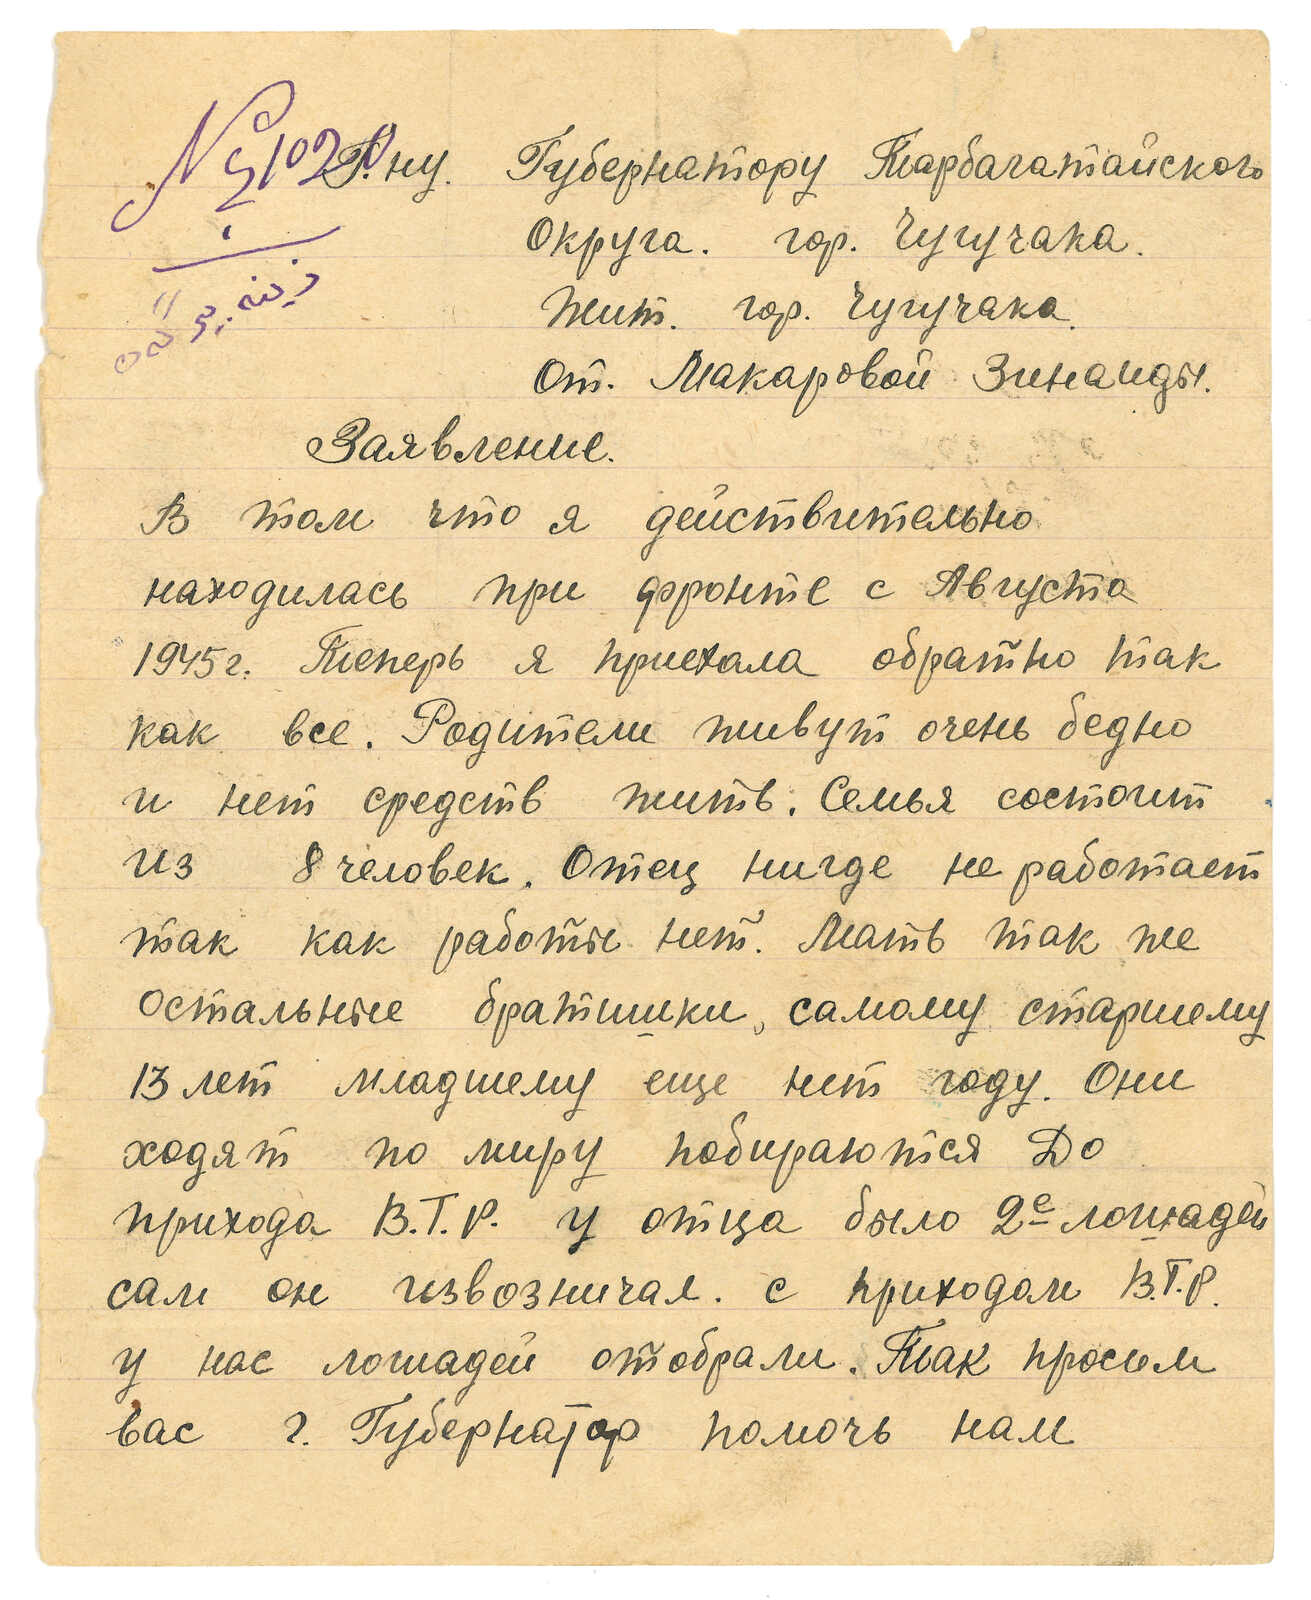 № 1020
Г.ну. Губернатору Тарбагатайского
Округа. гор. Чугучака.
Жит. гор. Чугучака.
От. Макаровой Зинаиды.
Заявление.
В том что я действительно
находилась при фронте с Августа
1945г. Теперь я приехала обратно так
как все. Родители живут очень бедно
и нет средств жить. Семья состоит
из 8 человек. Отец нигде не работает
так как работы нет. Мать так же
остальные братишки, самому старшему
13 лет младшему еще нет году. Они
ходят по миру побираются До
прихода В.Т.Р. у отца было 2е лошадей
сам он извозничал. с приходом В.Т.Р.
у нас лошадей отобрали. Так просим
вас г. Губернатор помочь нам